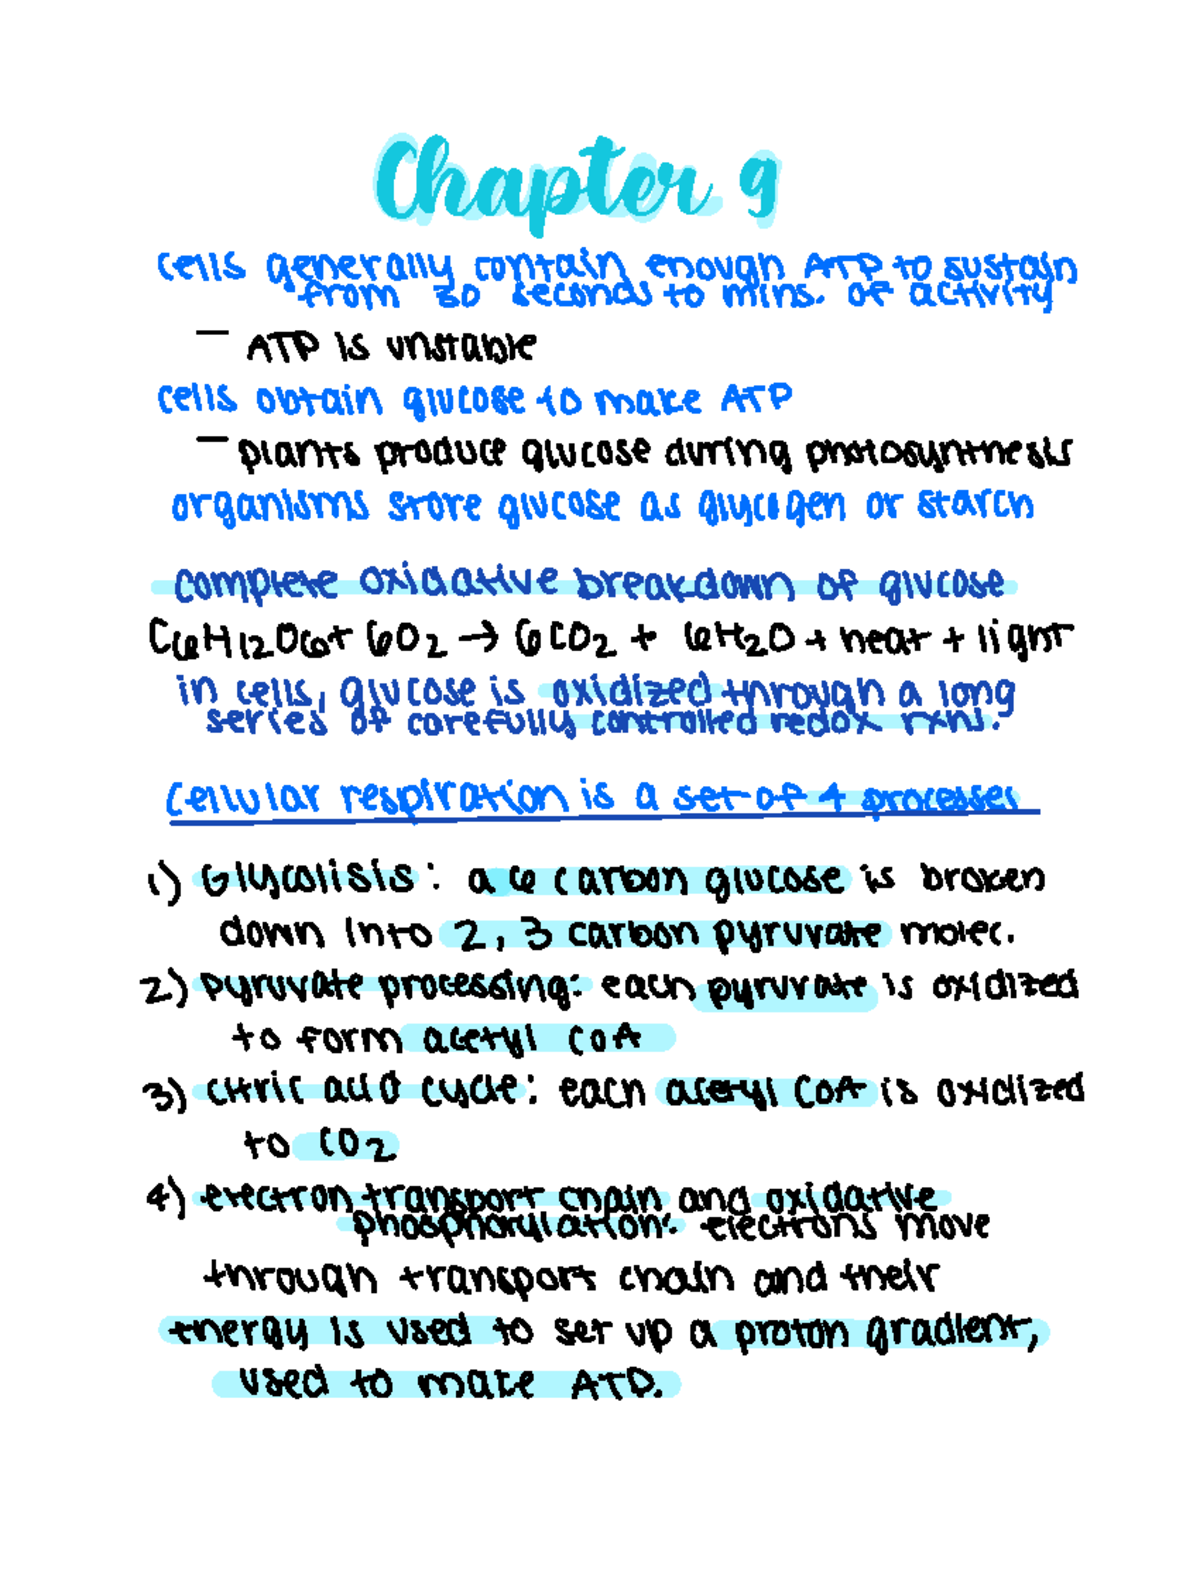 Chapter 9
cells generally contain enough ATP to sustain
from 30 seconds to mins. of activity
- ATP is unstable
cells obtain glucose to make ATP
- plants produce glucose during photosynthesis
organisms store glucose as glycogen or starch
complete oxidative breakdown of glucose
C6H12O6 + 6O2 → 6CO2 + 6H2O + heat + light
in cells, glucose is oxidized through a long
series of carefully controlled redox rxns.
cellular respiration is a set of 4 processes
1) Glycolisis: a 6 carbon glucose is broken
down into 2, 3 carbon pyruvate molec.
2) pyruvate processing: each pyruvate is oxidized
to form acetyl CoA
3) citric acid cycle: each acetyl CoA is oxidized
to CO2
4) electron transport chain and oxidative
phosphorylation: electrons move
through transport chain and their
energy is used to set up a proton gradient,
used to make ATP.